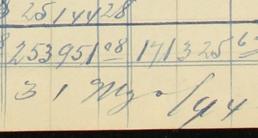 8 25,144 28
8 253951 08 171325 6
31 Mzo/44